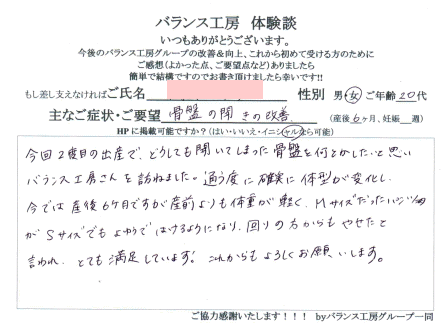 バランス工房　体験談
いつもありがとうございます。
今後のバランス工房グループの改善＆向上、これから初めて受ける方のために
ご感想（よかった点、ご要望点など）ありましたら
簡単で結構ですのでお書き頂けましたら幸いです!!
もし差し支えなければご氏名　性別　男・女　ご年齢20代
主なご症状・ご要望　骨盤の開きの改善　（産後6ヶ月、妊娠　週）
HPに掲載可能ですか？（はい・いいえ・イニシャルなら可能）
今回2度目の出産で、どうしても開いてしまった骨盤を何とかしたいと思い
バランス工房さんを訪ねました。通う度に確実に体型が変化し
今では産後6ヶ月ですが産前よりも体重が軽く、Mサイズだった
がSサイズでもよゆうではけるようになり、回りの方からもやせたと
言われ、とても満足しています。これからもよろしくお願いします。
ご協力感謝いたします！！！　byバランス工房グループ一同